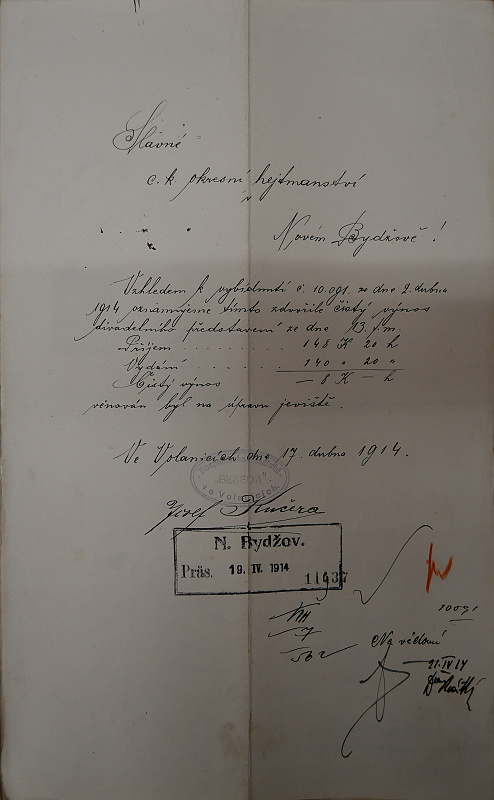 Slavné
c. k. okresní hejtmanství
v
Novém Bydžově!
Vzhledem k vybídnutí č. 10.091 ze dne 2. dubna
1914 oznamujeme tímto zdvořile čistý výnos
divadelního představení ze dne 13. t. m.
Příjem . . . . . . . . . 148 K 20 h
Vydání . . . . . . 140 " 20 "
Čistý výnos — 8 K — h
věnován byl na úpravu jeviště.
Ve Volanicích dne 17. dubna 1914.
"BESEDA"
ve Volanicích
Josef Kučera
N. Bydžov.
Präs. 19. IV. 1914
10091
Na vědomí
21.IV 14